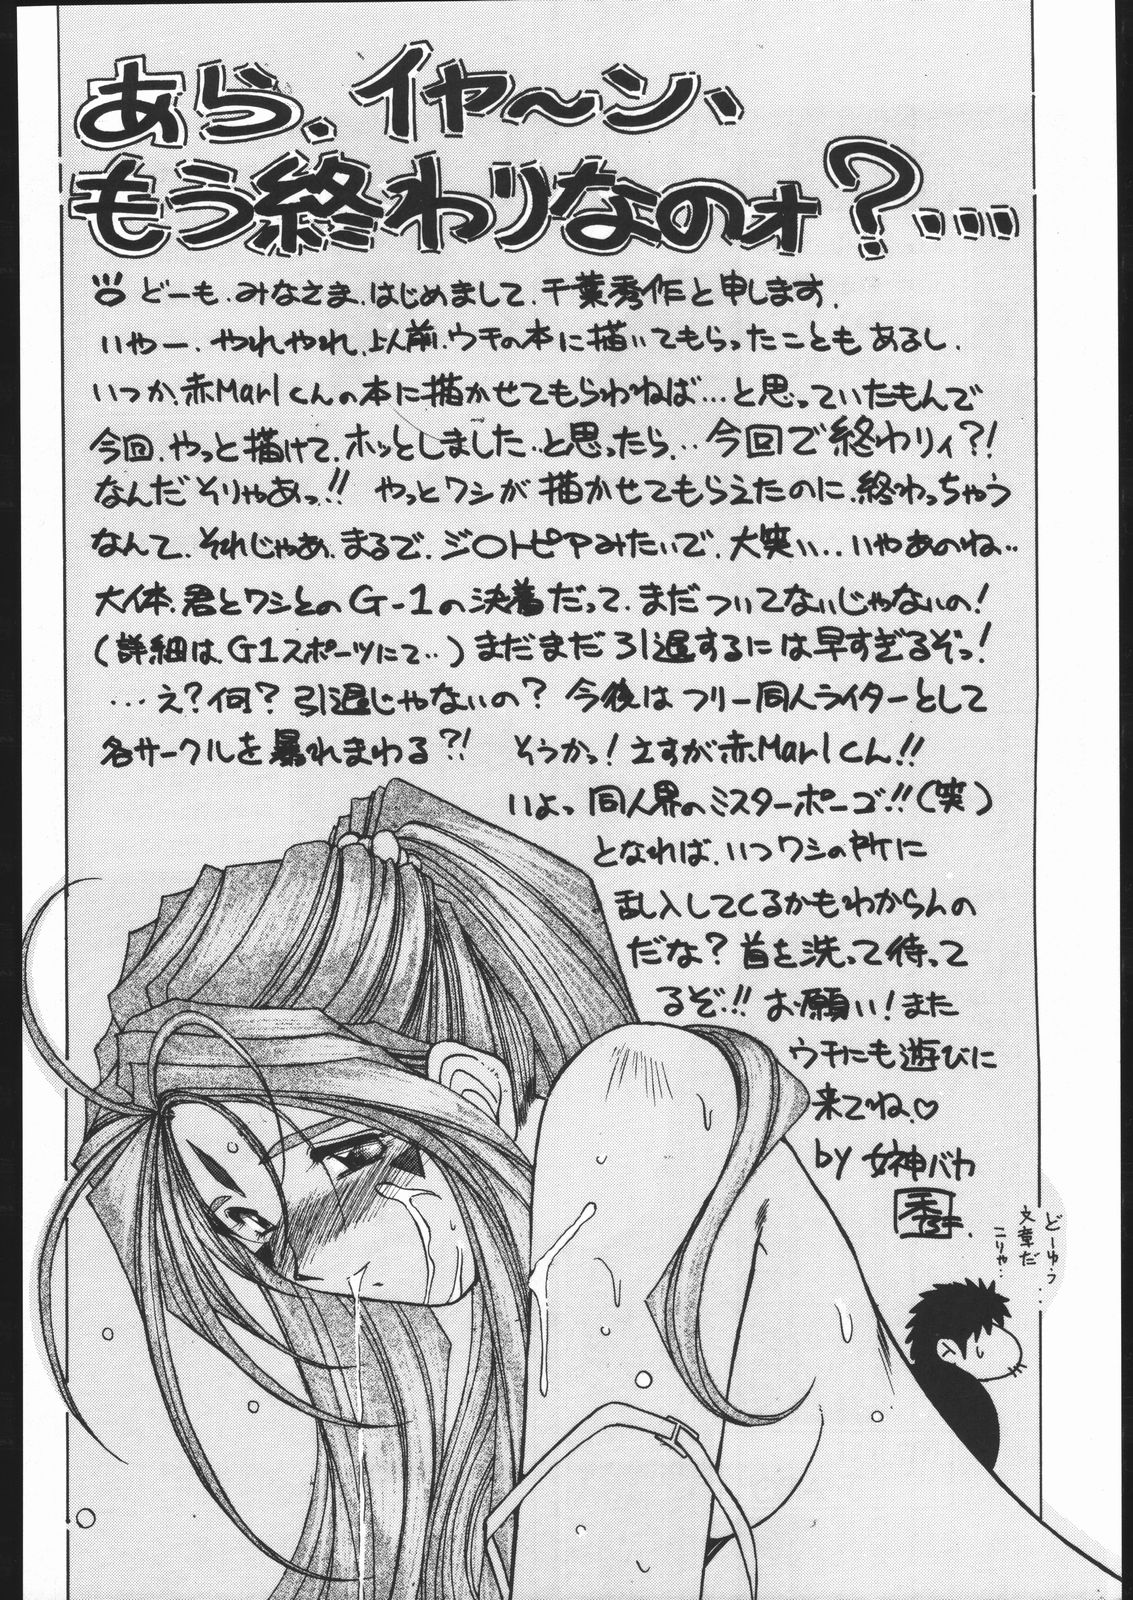 あら、イヤ～ン、
もう終わりなのォ？…
どーも、みなさま、はじめまして、千葉秀作と申します、
いやー、やれやれ、以前、ウチの本に描いてもらったこともあるし、
いつか、赤Marlくんの本に描かせてもらわねば…と思っていたもんで
今回、やっと描けて、ホッとしました…と思ったら、‥今回で終わりィ？！
なんだそりゃあっ!! やっとワシが描かせてもらえたのに、終わっちゃう
なんて、それじゃあ、まるで、ジ○トピアみたいで、大笑い…いやあのね‥
大体、君とワシとのG-1の決着だって、まだついてないじゃないの！
(詳細は、G1スポーツにて‥)まだまだ引退するには早すぎるぞっ！
…え？何？引退じゃないの？今後はフリー同人ライターとして
各サークルを暴れまわる?! そうかっ！さすが赤Marlくん!!
いよっ同人界のミスターポーゴ!!(笑)
となれば、いつワシの所に
乱入してくるかもわからんの
だな？首を洗って待って
るぞ!!お願い！また
ウチにも遊びに
来てね♡
by 女神バカ
秀
どーゆう…
文章だ
こりゃ…